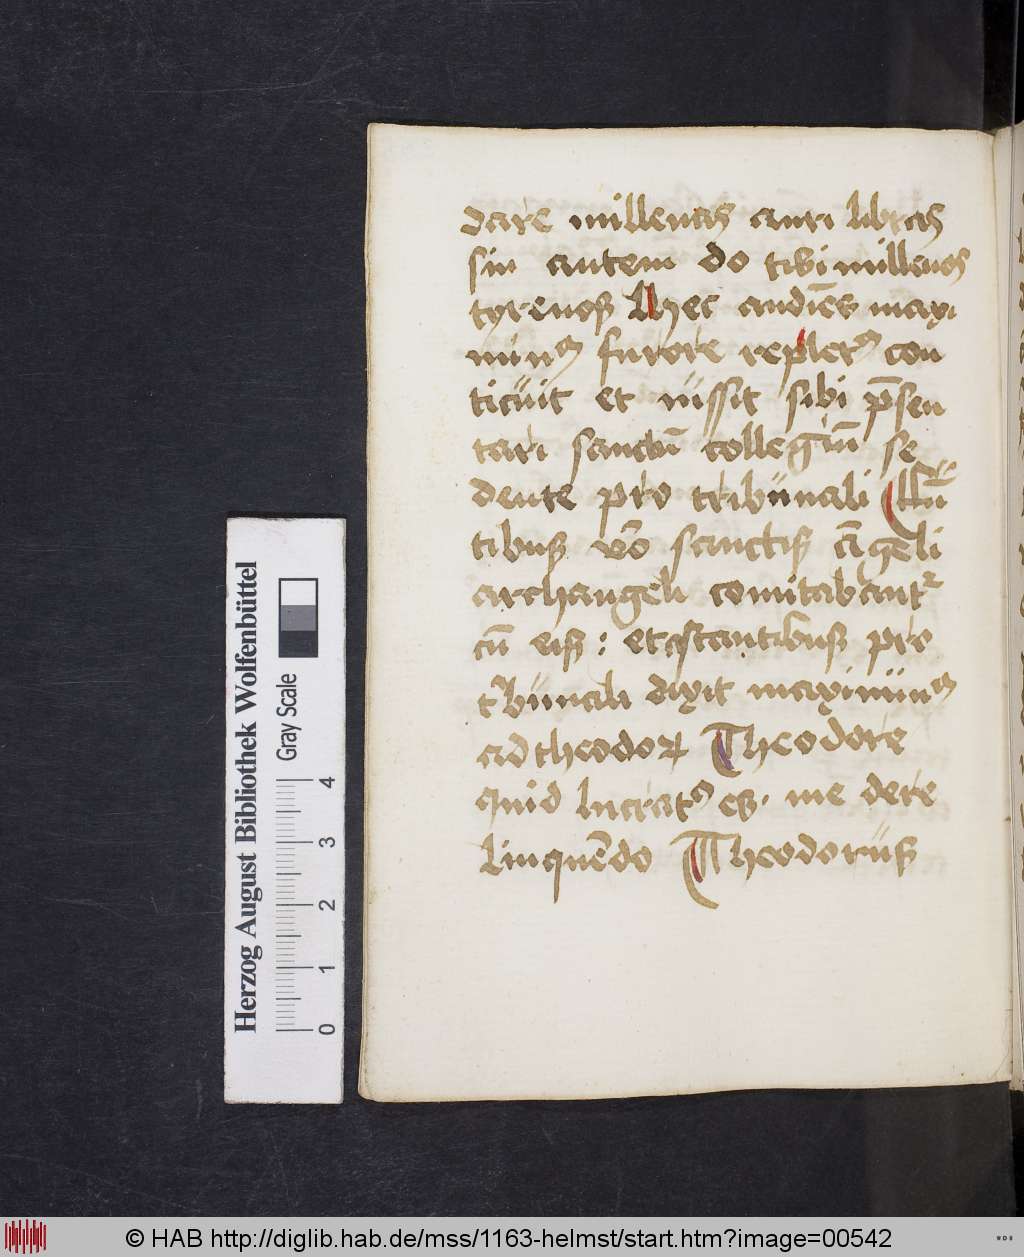 dare millenas auri libras
sin autem do tibi millenos
tyrenos Hec audie͞s maxi
min9 furore replet9 con
ticuit et iussit sibi p͞sen
tari sanctu͞ collegiu͞ se
dente pro tribunali Eu͞
tibus v͞o sanctis a͞geli
archangeli comitabantr
cu͞ eis : et astantibus pro
tibunali dixit maximin9
ad theodoꝝ Theodore
quid lucrat9 es. me dere
linque͞do Theodorus
Herzog August Bibliothek Wolfenbüttel
Gray Scale
0 1 2 3 4
© HAB http://diglib.hab.de/mss/1163-helmst/start.htm?image=00542